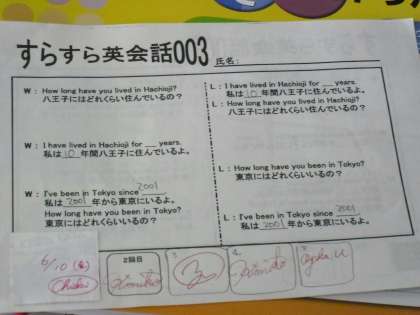 すらすら英会話003 氏名:
W: How long have you lived in Hachioji?
八王子にはどれくらい住んでいるの？
W: I have lived in Hachioji for __ years.
私は 10 年間八王子に住んでいるよ。
W: I've been in Tokyo since 2001.
私は 2001 年から東京にいるよ。
How long have you been in Tokyo?
東京にはどれくらいいるの？
L: I have lived in Hachioji for __ years.
私は 10 年間八王子に住んでいるよ。
L: How long have you lived in Hachioji?
八王子にはどれくらい住んでいるの？
L: How long have you been in Tokyo?
東京にはどれくらいいるの？
L: I've been in Tokyo since 2001.
私は 2001 年から東京にいるよ。
6/10 (金)
2回目
3.
4.